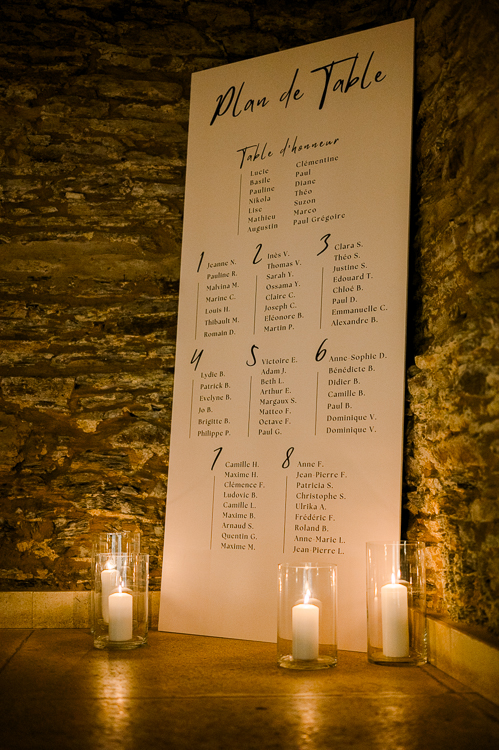 Plan de Table
Table d'honneur
Lucie
Basile
Pauline
Nikola
Lise
Mathieu
Augustin
Clémentine
Paul
Diane
Théo
Suzon
Marco
Paul Grégoire
1
Jeanne N.
Pauline R.
Malvina M.
Marine C.
Louis H.
Thibault M.
Romain D.
2
Inès V.
Thomas V.
Sarah Y.
Ossama Y.
Claire C.
Joseph C.
Eléonore B.
Martin P.
3
Clara S.
Théo S.
Justine S.
Edouard T.
Chloé B.
Paul D.
Emmanuelle C.
Alexandre B.
4
Lydie B.
Patrick B.
Evelyne B.
Jo B.
Brigitte B.
Philippe P.
5
Victoire E.
Adam J.
Beth L.
Arthur E.
Margaux S.
Matteo F.
Octave F.
Paul G.
6
Anne-Sophie D.
Bénédicte B.
Didier B.
Camille B.
Paul B.
Dominique V.
Dominique V.
7
Camille H.
Maxime H.
Clémence F.
Ludovic B.
Camille L.
Maxime B.
Arnaud S.
Quentin G.
Maxime M.
8
Anne F.
Jean-Pierre F.
Patricia S.
Christophe S.
Ulrika A.
Frédéric F.
Roland B.
Anne-Marie L.
Jean-Pierre L.